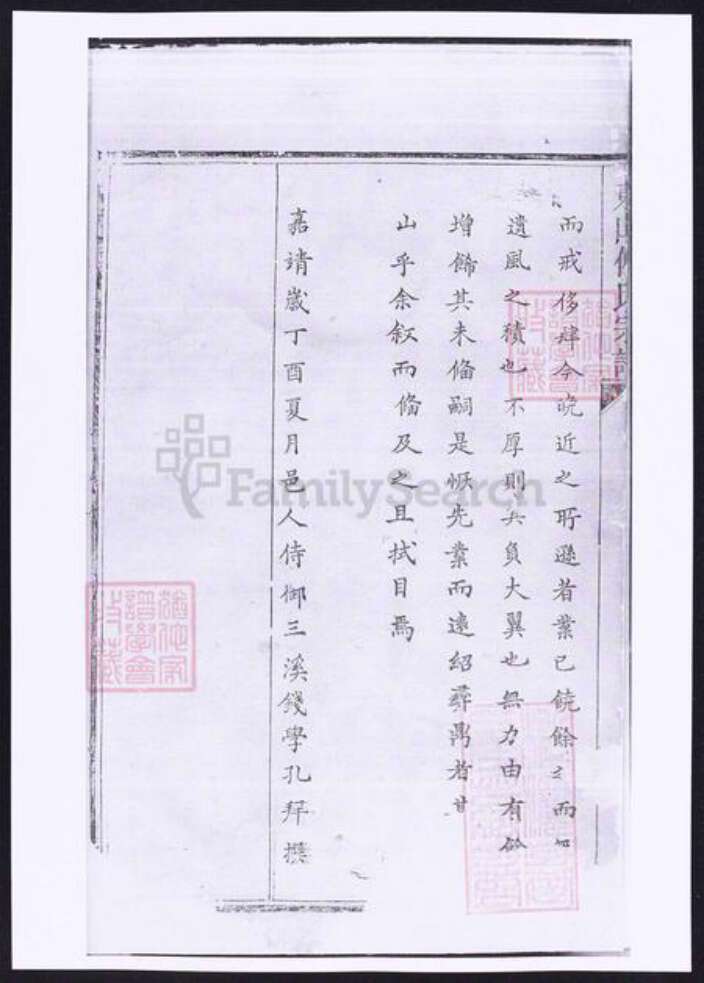 而戒侈肆今晚近之所遜者業已饒餘之而如
遺風之積也不厚則其負大翼也無力由有餘
增飾其未備嗣是恢先業而遠紹彞鼎者甘
山乎余叙而備及之且拭目焉
嘉靖歲丁酉夏月邑人侍御三溪錢學孔拜撰
氏宗譜
FamilySearch
譜學會
藏